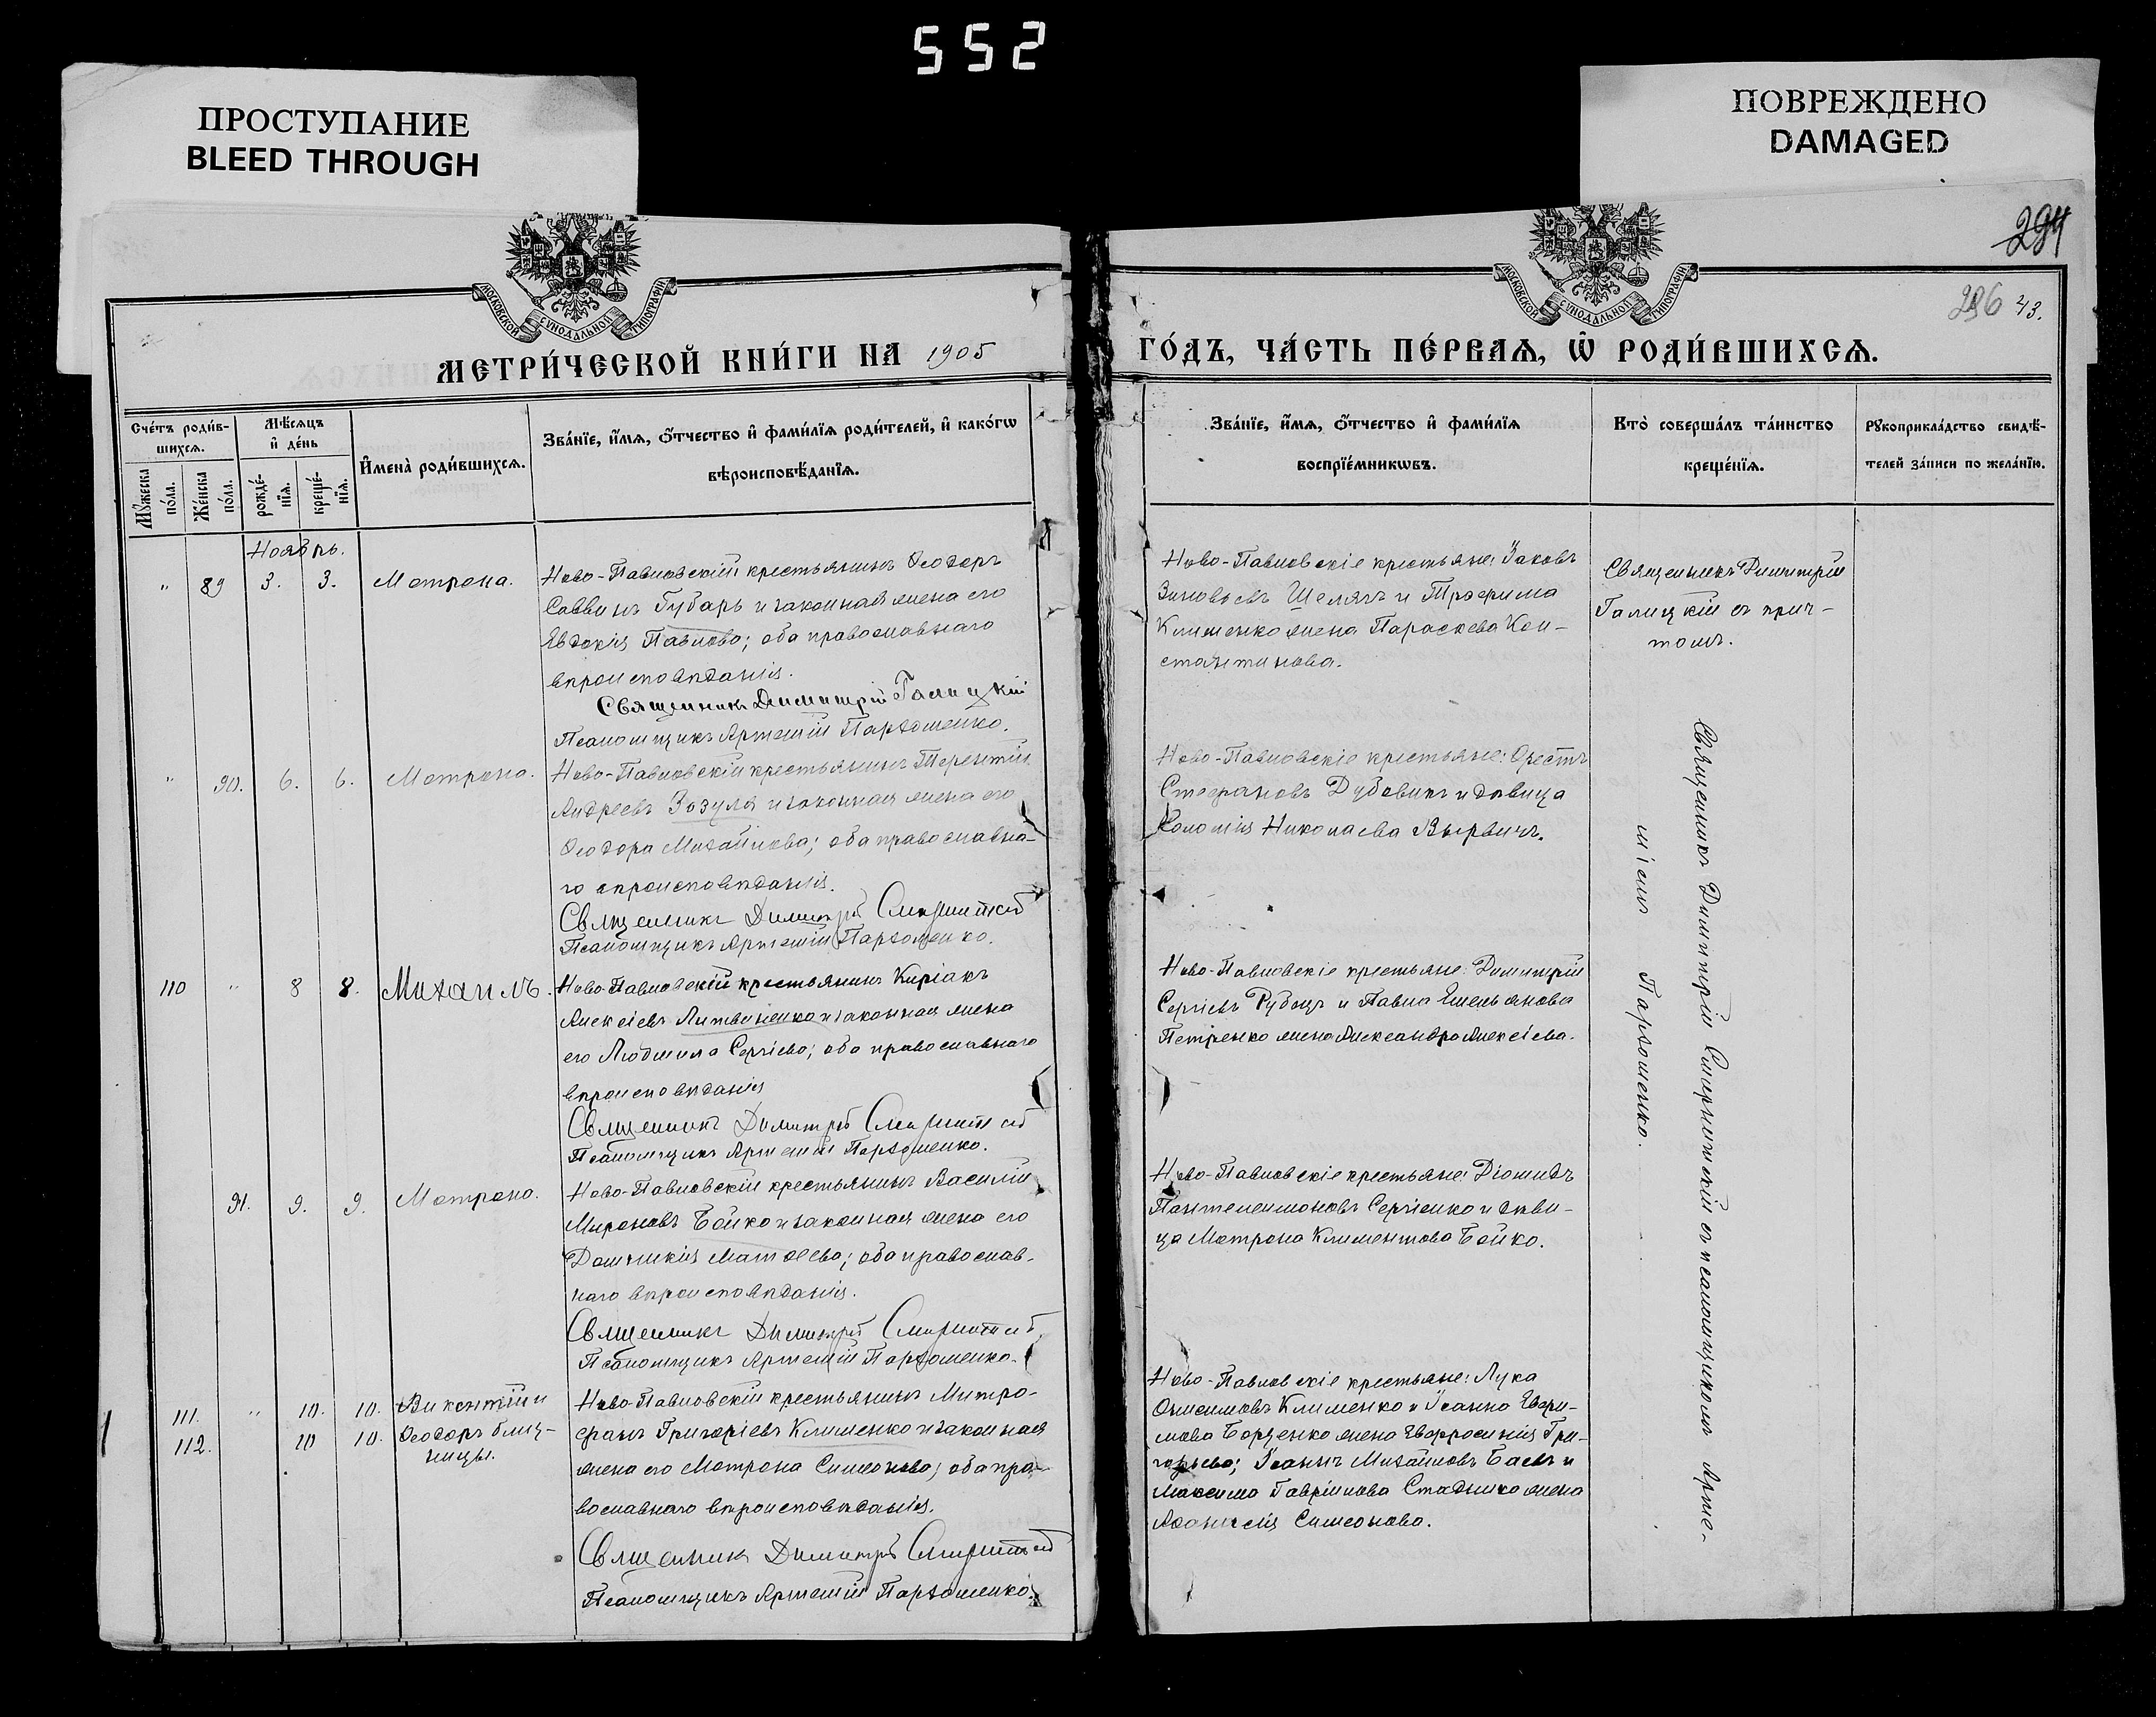 552
ПРОСТУПАНИЕ
BLEED THROUGH
ПОВРЕЖДЕНО
DAMAGED
294
296 43.
МОСКОВСКОЙ СУНОДАЛЬНОЙ ТИПОГРАФІИ
МОСКОВСКОЙ СУНОДАЛЬНОЙ ТИПОГРАФІИ
МЕТРИ́ЧЕСКОЙ КНИ́ГИ НА 1905
ГО́ДЪ, ЧА́СТЬ ПЕ́РВАѦ, Ѡ҆ РОДИ́ВШИХСѦ.
Сче́тъ роди́в-
шихсѧ.
Мꙋ́жеска по́ла.
Же́нска по́ла.
Мѣ́сѧцъ
и҆ де́нь
рожде́-
нїѧ.
креще́-
нїѧ.
И҆мена̀ роди́вшихсѧ.
Зва́нїе, и҆́мѧ, ѻ҆́тчество и҆ фами́лїѧ роди́телей, и҆ како́гѡ
вѣроисповѣ́данїѧ.
Зва́нїе, и҆́мѧ, ѻ҆́тчество и҆ фами́лїѧ
воспрїе́мникѡвъ.
Кто̀ соверша́лъ та́инство
креще́нїѧ.
Рꙋкоприкла́дство свидѣ́-
телей за́писи по жела́нїю.
Ноябрь.
" 89 3. 3. Матрона.
Ново-Павловскій крестьянинъ Ѳеодоръ
Саввинъ Губарь и законная жена его
Евдокія Павлова; оба православнаго
вѣроисповѣданія.
Священникъ Димитрій Галицкій
Псаломщикъ Артемій Пархоменко.
Ново-Павловскіе крестьяне: Іаковъ
Зиновьевъ Шеляг и Трофима
Клименко жена Параскева Кон-
стантинова.
Священникъ Димитрій
Галицкій съ прич-
томъ.
" 90. 6. 6. Матрона.
Ново-Павловскій крестьянинъ Терентій
Андреевъ Зозуля и законная жена его
Ѳеодора Михайлова; оба православна-
го вѣроисповѣданія.
Священникъ Димитрій
Псаломщикъ Артемій Пархоменко.
Ново-Павловскіе крестьяне: Орестъ
Стефановъ Дубовикъ и дѣвица
Николаева Вырвичъ.
110 " 8 8. Михаилъ.
Ново-Павловскій крестьянинъ Киріакъ
Алексіевъ Литвиненко и законная жена
его Людмила Сергіева; оба православнаго
вѣроисповѣданія
Священникъ Димитрій
Псаломщикъ Артемій Пархоменко.
Ново-Павловскіе крестьяне: Димитрій
Сергіевъ Рубецъ и Павла Емельянова
Петренко жена Александра Алексіева.
91. 9. 9. Матрона.
Ново-Павловскій крестьянинъ Василій
Мироновъ Бойко и законная жена его
Домникія Матѳеева; оба православ-
наго вѣроисповѣданія.
Священникъ Димитрій
Псаломщикъ Артемій Пархоменко.
Ново-Павловскіе крестьяне: Діомидъ
Пантелеимоновъ Сергіенко и дѣви-
ца Матрона Климентова Бойко.
111. " 10. 10. Викентій и
112. 10 10. Ѳеодоръ близ-
нецы.
Ново-Павловскій крестьянинъ Митро-
фанъ Григоріевъ Клименко и законная
жена его Матрона Симеонова; оба пра-
вославнаго вѣроисповѣданія.
Священникъ Димитрій
Псаломщикъ Артемій Пархоменко.
Ново-Павловскіе крестьяне: Лука
Онисимовъ Клименко и Іоанна Ефри-
мова Борценко жена Евфросинія Гри-
горьева; Іоаннъ Михайловъ Баевъ и
Максима Гавріилова Стадника жена
Аѳанасія Симеонова.
Священникъ Димитрій Смирнитскій съ псаломщикомъ Арте-
міемъ Пархоменко.